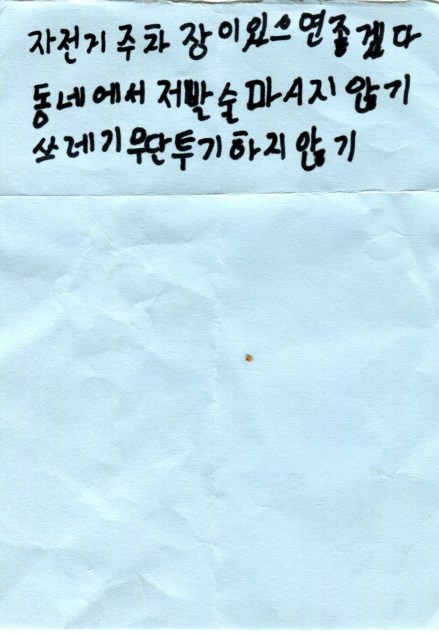 자전기 주차 장이 있으면 좋겠다
동네에서 저발 술 마시지 않기
쓰레기 무단투기하지 않기